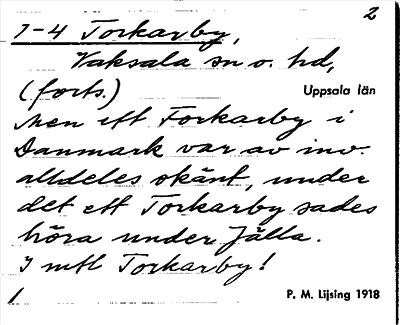 2
1-4 Torkarby,
Vaksala sn o. hd,
(forts.) Uppsala län
Men ett Torkarby i
Danmark var av inv.
alldeles okänt, under
det ett Torkarby sades
höra under Jälla.
I mtl Torkarby!
/ P. M. Lijsing 1918